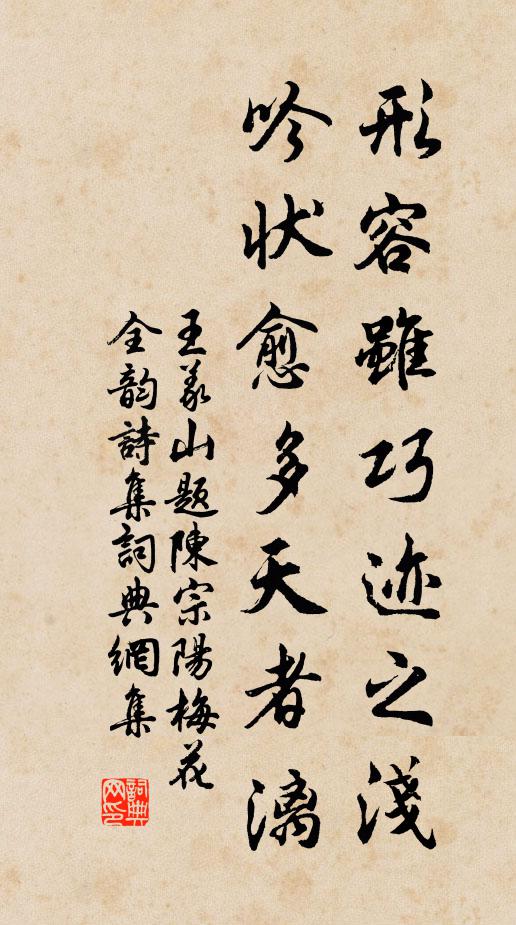 形容雖巧迹之淺
吟状愈多天者漓
王義山題陳宗陽梅花
全韵詩集詞典網集
詞典
网印